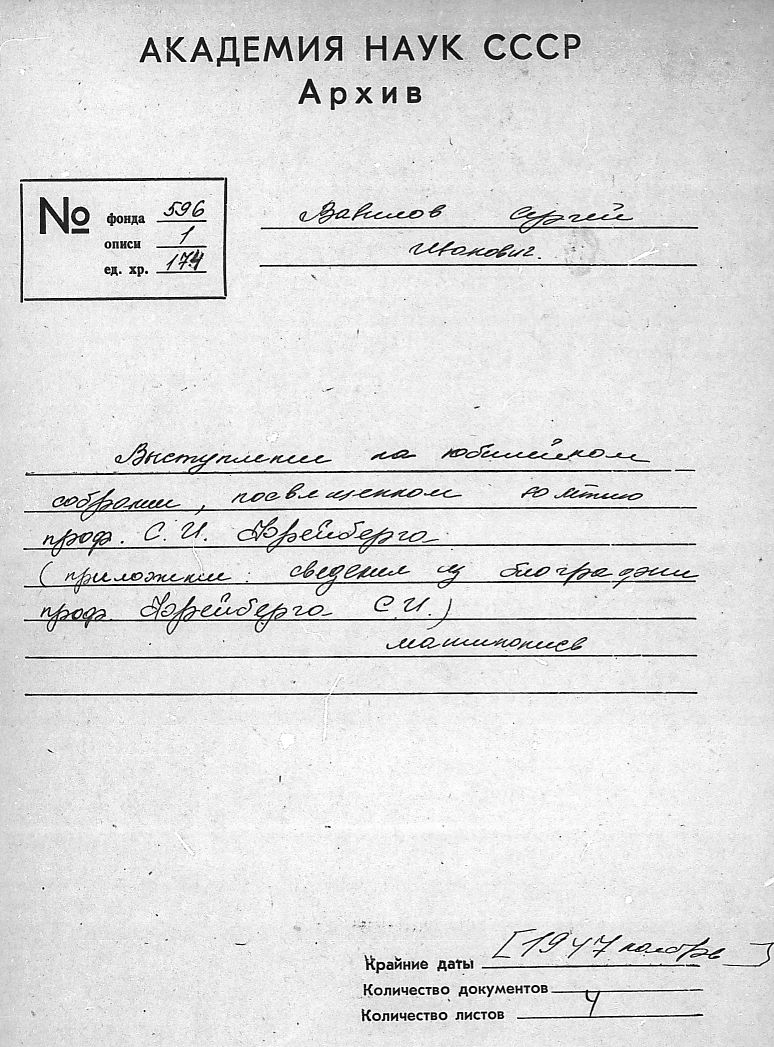 АКАДЕМИЯ НАУК СССР
Архив
№
фонда 596
описи 1
ед. хр. 174
Вавилов Сергей
Иванович.
Выступление на юбилейном
собрании, посвященном 70летию
проф. С. И. Фрейберга
(приложение: сведения из биографии
проф. Фрейберга С.И.)
машинопись
Крайние даты [1947 ноябрь]
Количество документов
Количество листов 4